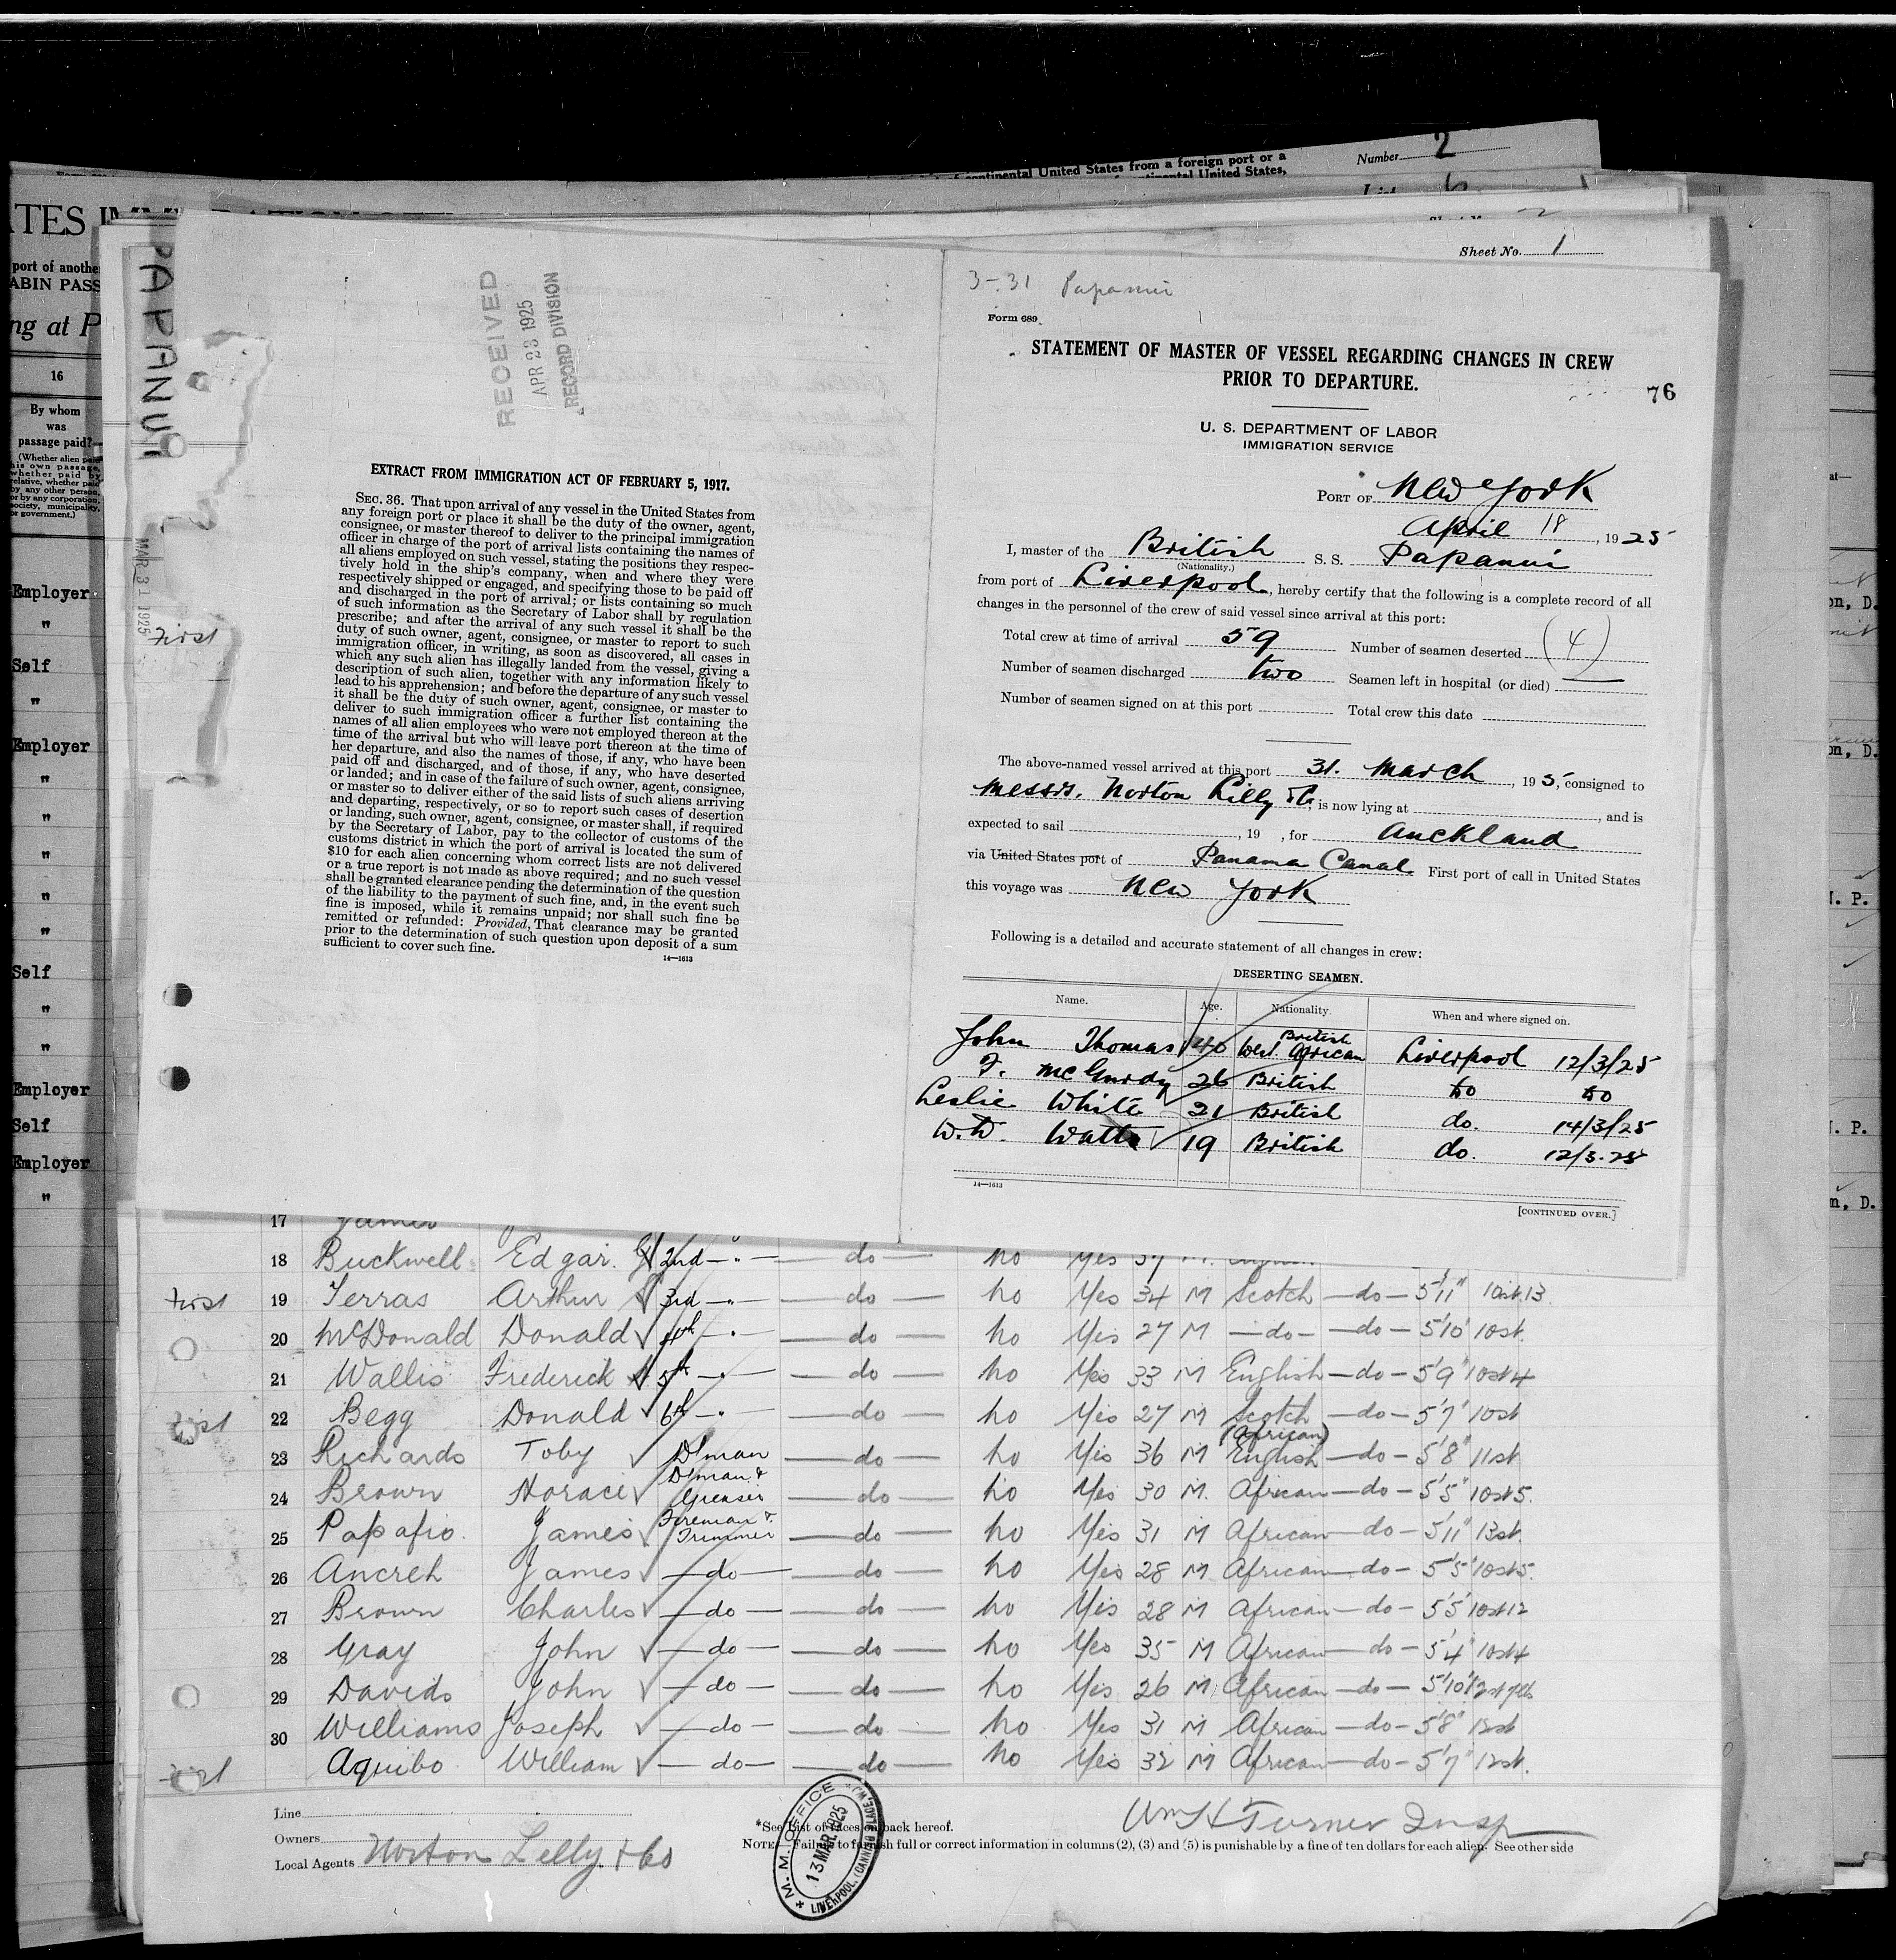 continental United States from a foreign port or a
continental United States,
Number 2
Sheet No. 1
TES
port of anothe
ABIN PASS
ng at P
16
By whom
was
passage paid?
(Whether alien paid
his own passage,
whether paid by
relative, whether paid
by any other person,
or by any corporation,
society, municipality,
or government.)
Employer
"
Self
"
Employer
"
"
"
"
"
Self
"
"
Employer
Self
Employer
"
PAPANUI
MAR 31 1925
First
RECEIVED
APR 23 1925
RECORD DIVISION
EXTRACT FROM IMMIGRATION ACT OF FEBRUARY 5, 1917.
SEC. 36. That upon arrival of any vessel in the United States from
any foreign port or place it shall be the duty of the owner, agent,
consignee, or master thereof to deliver to the principal immigration
officer in charge of the port of arrival lists containing the names of
all aliens employed on such vessel, stating the positions they respec-
tively hold in the ship's company, when and where they were
respectively shipped or engaged, and specifying those to be paid off
and discharged in the port of arrival; or lists containing so much
of such information as the Secretary of Labor shall by regulation
prescribe; and after the arrival of any such vessel it shall be the
duty of such owner, agent, consignee, or master to report to such
immigration officer, in writing, as soon as discovered, all cases in
which any such alien has illegally landed from the vessel, giving a
description of such alien, together with any information likely to
lead to his apprehension; and before the departure of any such vessel
it shall be the duty of such owner, agent, consignee, or master to
deliver to such immigration officer a further list containing the
names of all alien employees who were not employed thereon at the
time of the arrival but who will leave port thereon at the time of
her departure, and also the names of those, if any, who have been
paid off and discharged, and of those, if any, who have deserted
or landed; and in case of the failure of such owner, agent, consignee,
or master so to deliver either of the said lists of such aliens arriving
and departing, respectively, or so to report such cases of desertion
or landing, such owner, agent, consignee, or master shall, if required
by the Secretary of Labor, pay to the collector of customs of the
customs district in which the port of arrival is located the sum of
$10 for each alien concerning whom correct lists are not delivered
or a true report is not made as above required; and no such vessel
shall be granted clearance pending the determination of the question
of the liability to the payment of such fine, and, in the event such
fine is imposed, while it remains unpaid; nor shall such fine be
remitted or refunded: Provided, That clearance may be granted
prior to the determination of such question upon deposit of a sum
sufficient to cover such fine.
14—1613
3-31 Papanui
Form 689
STATEMENT OF MASTER OF VESSEL REGARDING CHANGES IN CREW
PRIOR TO DEPARTURE.
76
U. S. DEPARTMENT OF LABOR
IMMIGRATION SERVICE
PORT OF New York
April 18, 1925
I, master of the British S. S. Papanui
(Nationality.)
from port of Liverpool, hereby certify that the following is a complete record of all
changes in the personnel of the crew of said vessel since arrival at this port:
Total crew at time of arrival 59 Number of seamen deserted (4)
Number of seamen discharged two Seamen left in hospital (or died) —
Number of seamen signed on at this port Total crew this date
The above-named vessel arrived at this port 31. March, 19 5, consigned to
Messrs. Norton Lilly & Co, is now lying at , and is
expected to sail , 19 , for Auckland
via United States port of Panama Canal. First port of call in United States
this voyage was New York
Following is a detailed and accurate statement of all changes in crew:
DESERTING SEAMEN.
Name. Age. Nationality. When and where signed on.
John Thomas 40 British West African Liverpool 12/3/25
F. McGurdy 26 British do do
Leslie White 21 British do. 14/3/25
W. W. Watts 19 British do. 12/3.25
14—1613
[CONTINUED OVER.]
17 James
18 Buckwell Edgar 2nd — " — do — no Yes 37 M.
First 19 Ferras Arthur 3rd — " — do — no Yes 34 M Scotch — do — 5'11" 10st.13
20 McDonald Donald 4th — " — do — no Yes 27 M — do — — do — 5'10" 10st.
21 Wallis Frederick 5th — " — do — no Yes 33 M English — do — 5'9" 10st4
First 22 Begg Donald 6th — " — do — no Yes 27 M Scotch — do — 5'7" 10st
23 Richards Toby D'man — do — no Yes 36 M (African) English — do — 5'8" 11st
24 Brown Horace D'man & Greaser — do — no Yes 30 M. African — do — 5'5" 10st5.
25 Papafio James Fireman & Trimmer — do — no Yes 31 M African — do — 5'11" 13st.
26 Ancreh James — do — — do — no Yes 28 M African — do — 5'5" 10st5.
27 Brown Charles — do — — do — no Yes 28 M African — do — 5'5" 10st12
28 Gray John — do — — do — no Yes 35 M African — do — 5'4" 10st4
29 Davids John — do — — do — no Yes 26 M African — do — 5'10" 12st7lb
30 Williams Joseph — do — — do — no Yes 31 M African — do — 5'8" 12st
Aquibo William — do — — do — no Yes 32 M African — do — 5'7" 12st.
Line
Owners
Local Agents Norton Lilly & Co
M. M. OFFICE
13 MAR. 1925
LIVERPOOL
*See List of races on back hereof.
Wm H Turner Insp
NOTE—Failure to furnish full or correct information in columns (2), (3) and (5) is punishable by a fine of ten dollars for each alien. See other side